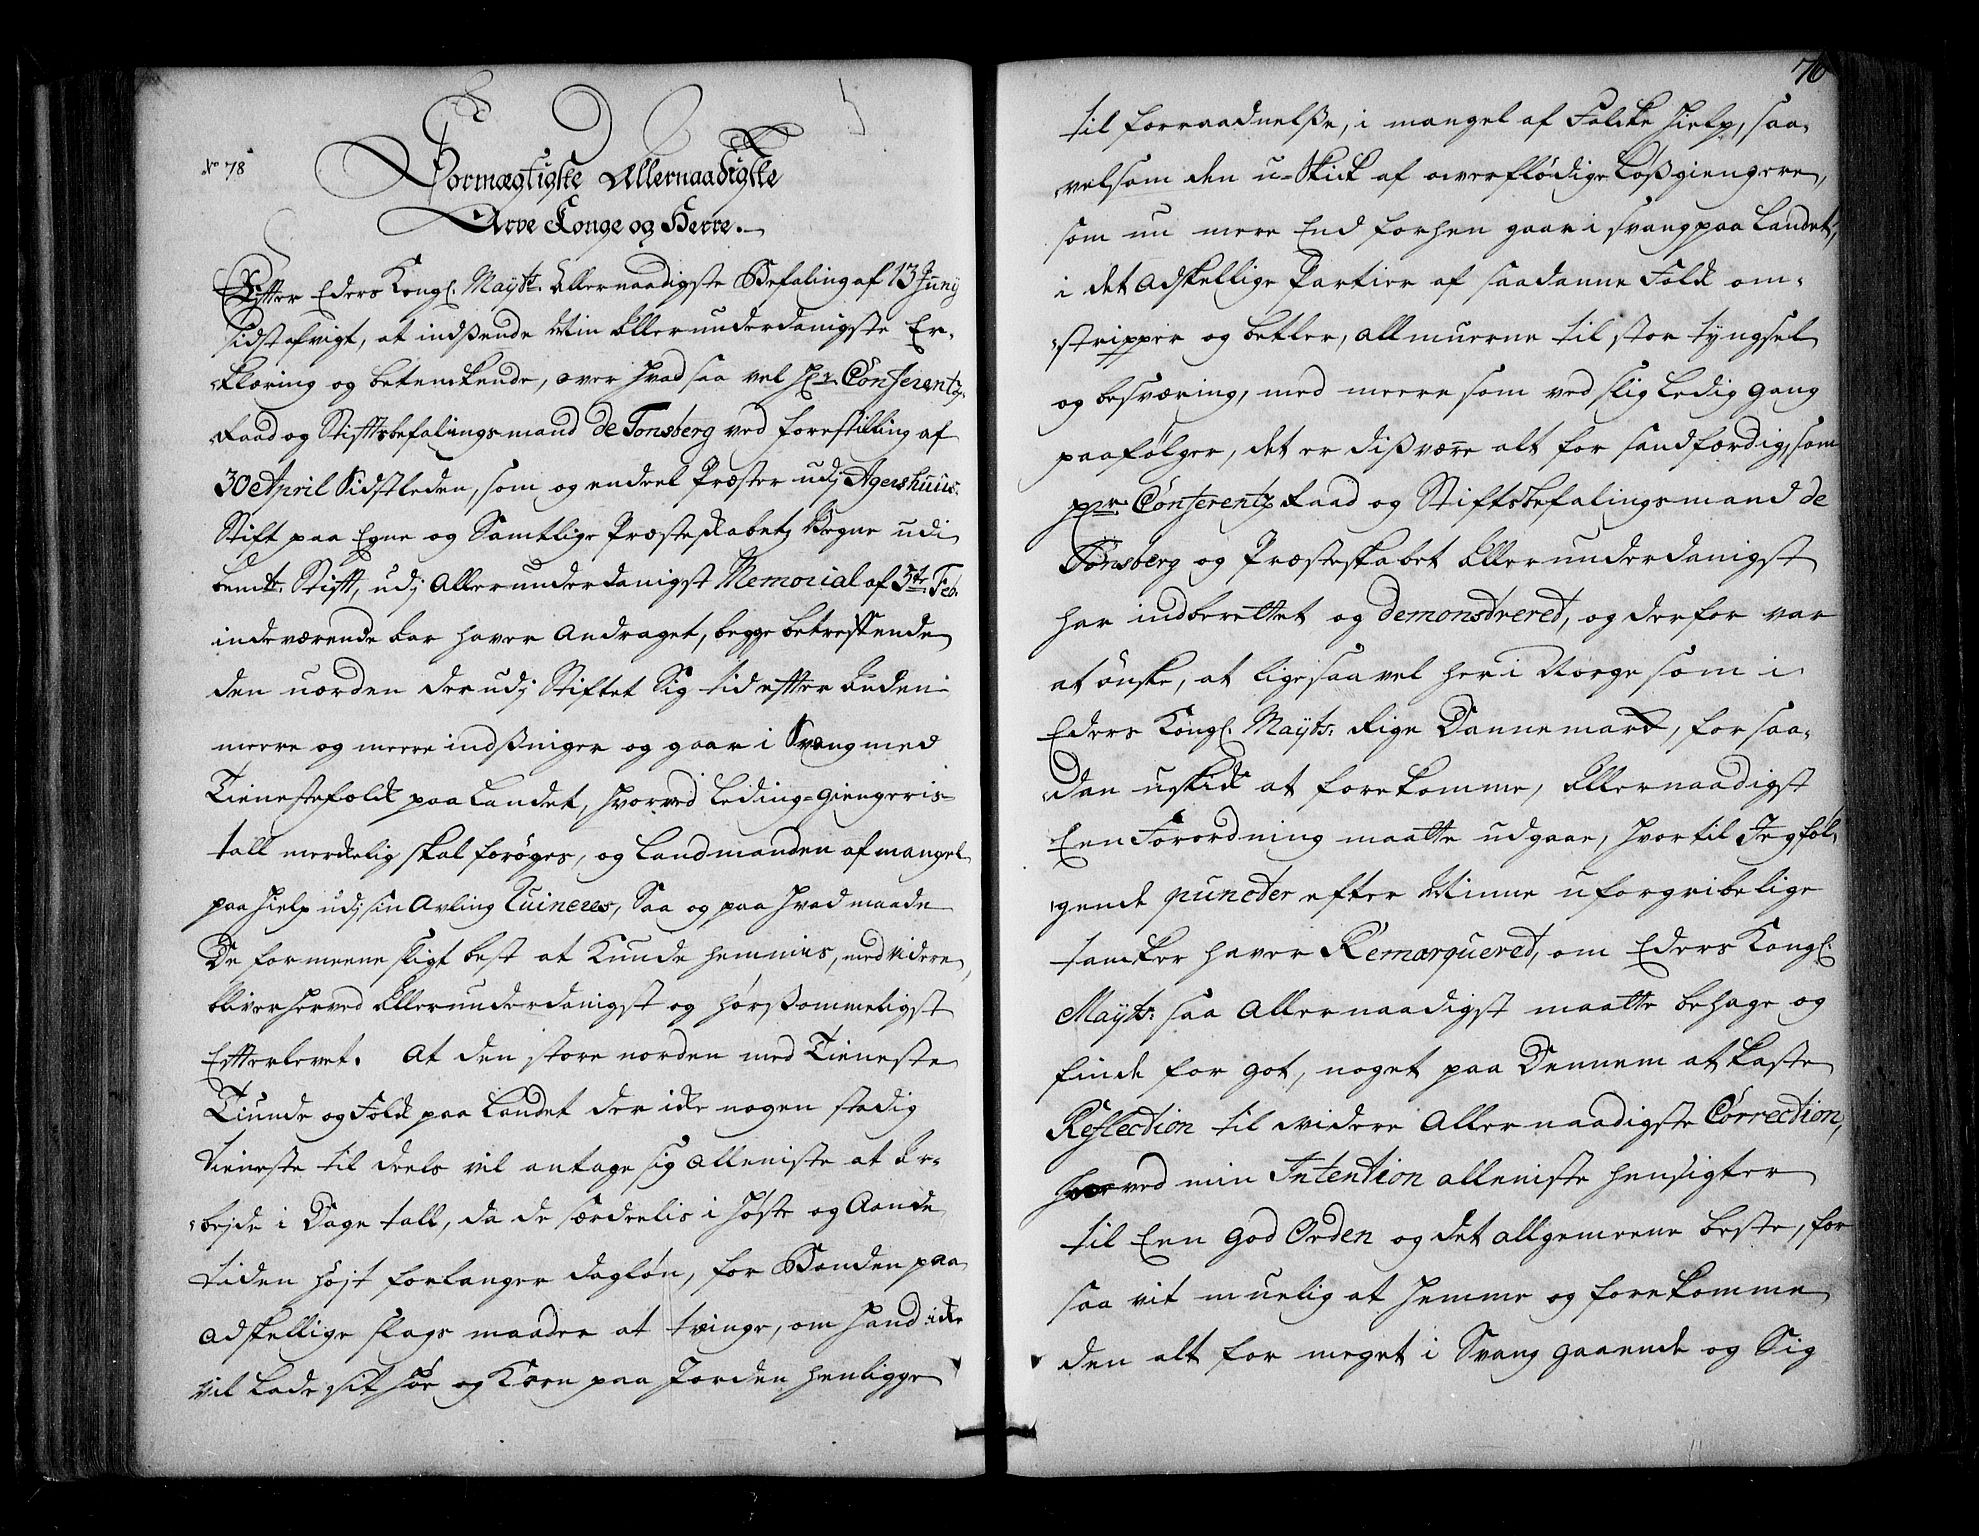 No 78
Stormægtigste Allernaadigste
Arve Konge og Herre.
Effter Eders Kongl. Mayts. Allernaadigste Befaling af 13 Junij
sidst afvigt, at indsende Min Allerunderdanigste Er-
klæring og betenckende, over hvad saa vel Hr. Conferentz
Raad og Stiftsbefalingsmand de Tonsberg ved forestilling af
30 April Sidstleden, som og endeel Præster udj Agershuus
Stift paa Egne og Samtlige Præsteskabetz Vegne udi
bemte. Stift, udj Allerunderdanigst Memorial af 3te Feb.
indeværende Aar haver Andraget, begge betreffende
den uorden der udj Stiftet Sig tid effter Anden
meere og meere indsniger og gaar i Svang med
Tienestefolck paa Landet, hvorved Leding-giengeris
tall merckelig skal forøges, og Landmanden af mangel
paa hielp udj sin Avling Ruineres, Saa og paa hvad maade
De formeene sligt best at kunde hemmis, med videre,
bliver herved Allerunderdanigst og hørsommeligst
Effterlevet. At den store uorden med Tieneste
Tiunde og Folck paa Landet der icke nogen stadig
tieneste til deels vil antage sig alleniste at Ar-
bejde i Dage tall, da de særdeelis i Høste og Aande
tiden højt forlanger dagløn, for Bonden paa
adskellige slags maader at tvinge, om hand icke
vil lade sit Høe og Korn paa Jorden henligge
76
til forraadnelse, i mangel af Folcke hielp, saa-
velsom den u-skick af overflødige Løsgiengere,
som nu mere End forhen gaar i svang paa Landet,
i det Adskellige Partier af saadanne Folck om-
stripper og betler, allmuerne til stor tyngsel
og besværing, med meere som ved slig Ledig gang
paafølger, det er disværre alt for sandfærdig, som
Hr. Conferentz Raad og Stiftsbefalingsmand de
Tonsberg og Præsteskabet Allerunderdanigst
har indberettet og demonstreret, og derfor var
at ønske, at ligesaavel her i Norge som i
Eders Kongl. Mayts. Rige Dannemarck, for saa-
dan uskick at forekomme, Allernaadigst
Een Forordning maatte udgaae, hvortil Jeg føl-
gende puncter efter Minne uforgribelige
tancker haver Remarqueret, om Eders Kongl.
Mayts. saa Allernaadigst maatte behage og
finde for got, noget paa Dennem at kaste
Reflection til videre Allernaadigste Correction,
hvorved min Intention alleniste hensigter
til Een god Orden og det allgemeene beste, for
saa vit muelig at hemme og forekomme
den alt for meget i Svang gaaende og Sig